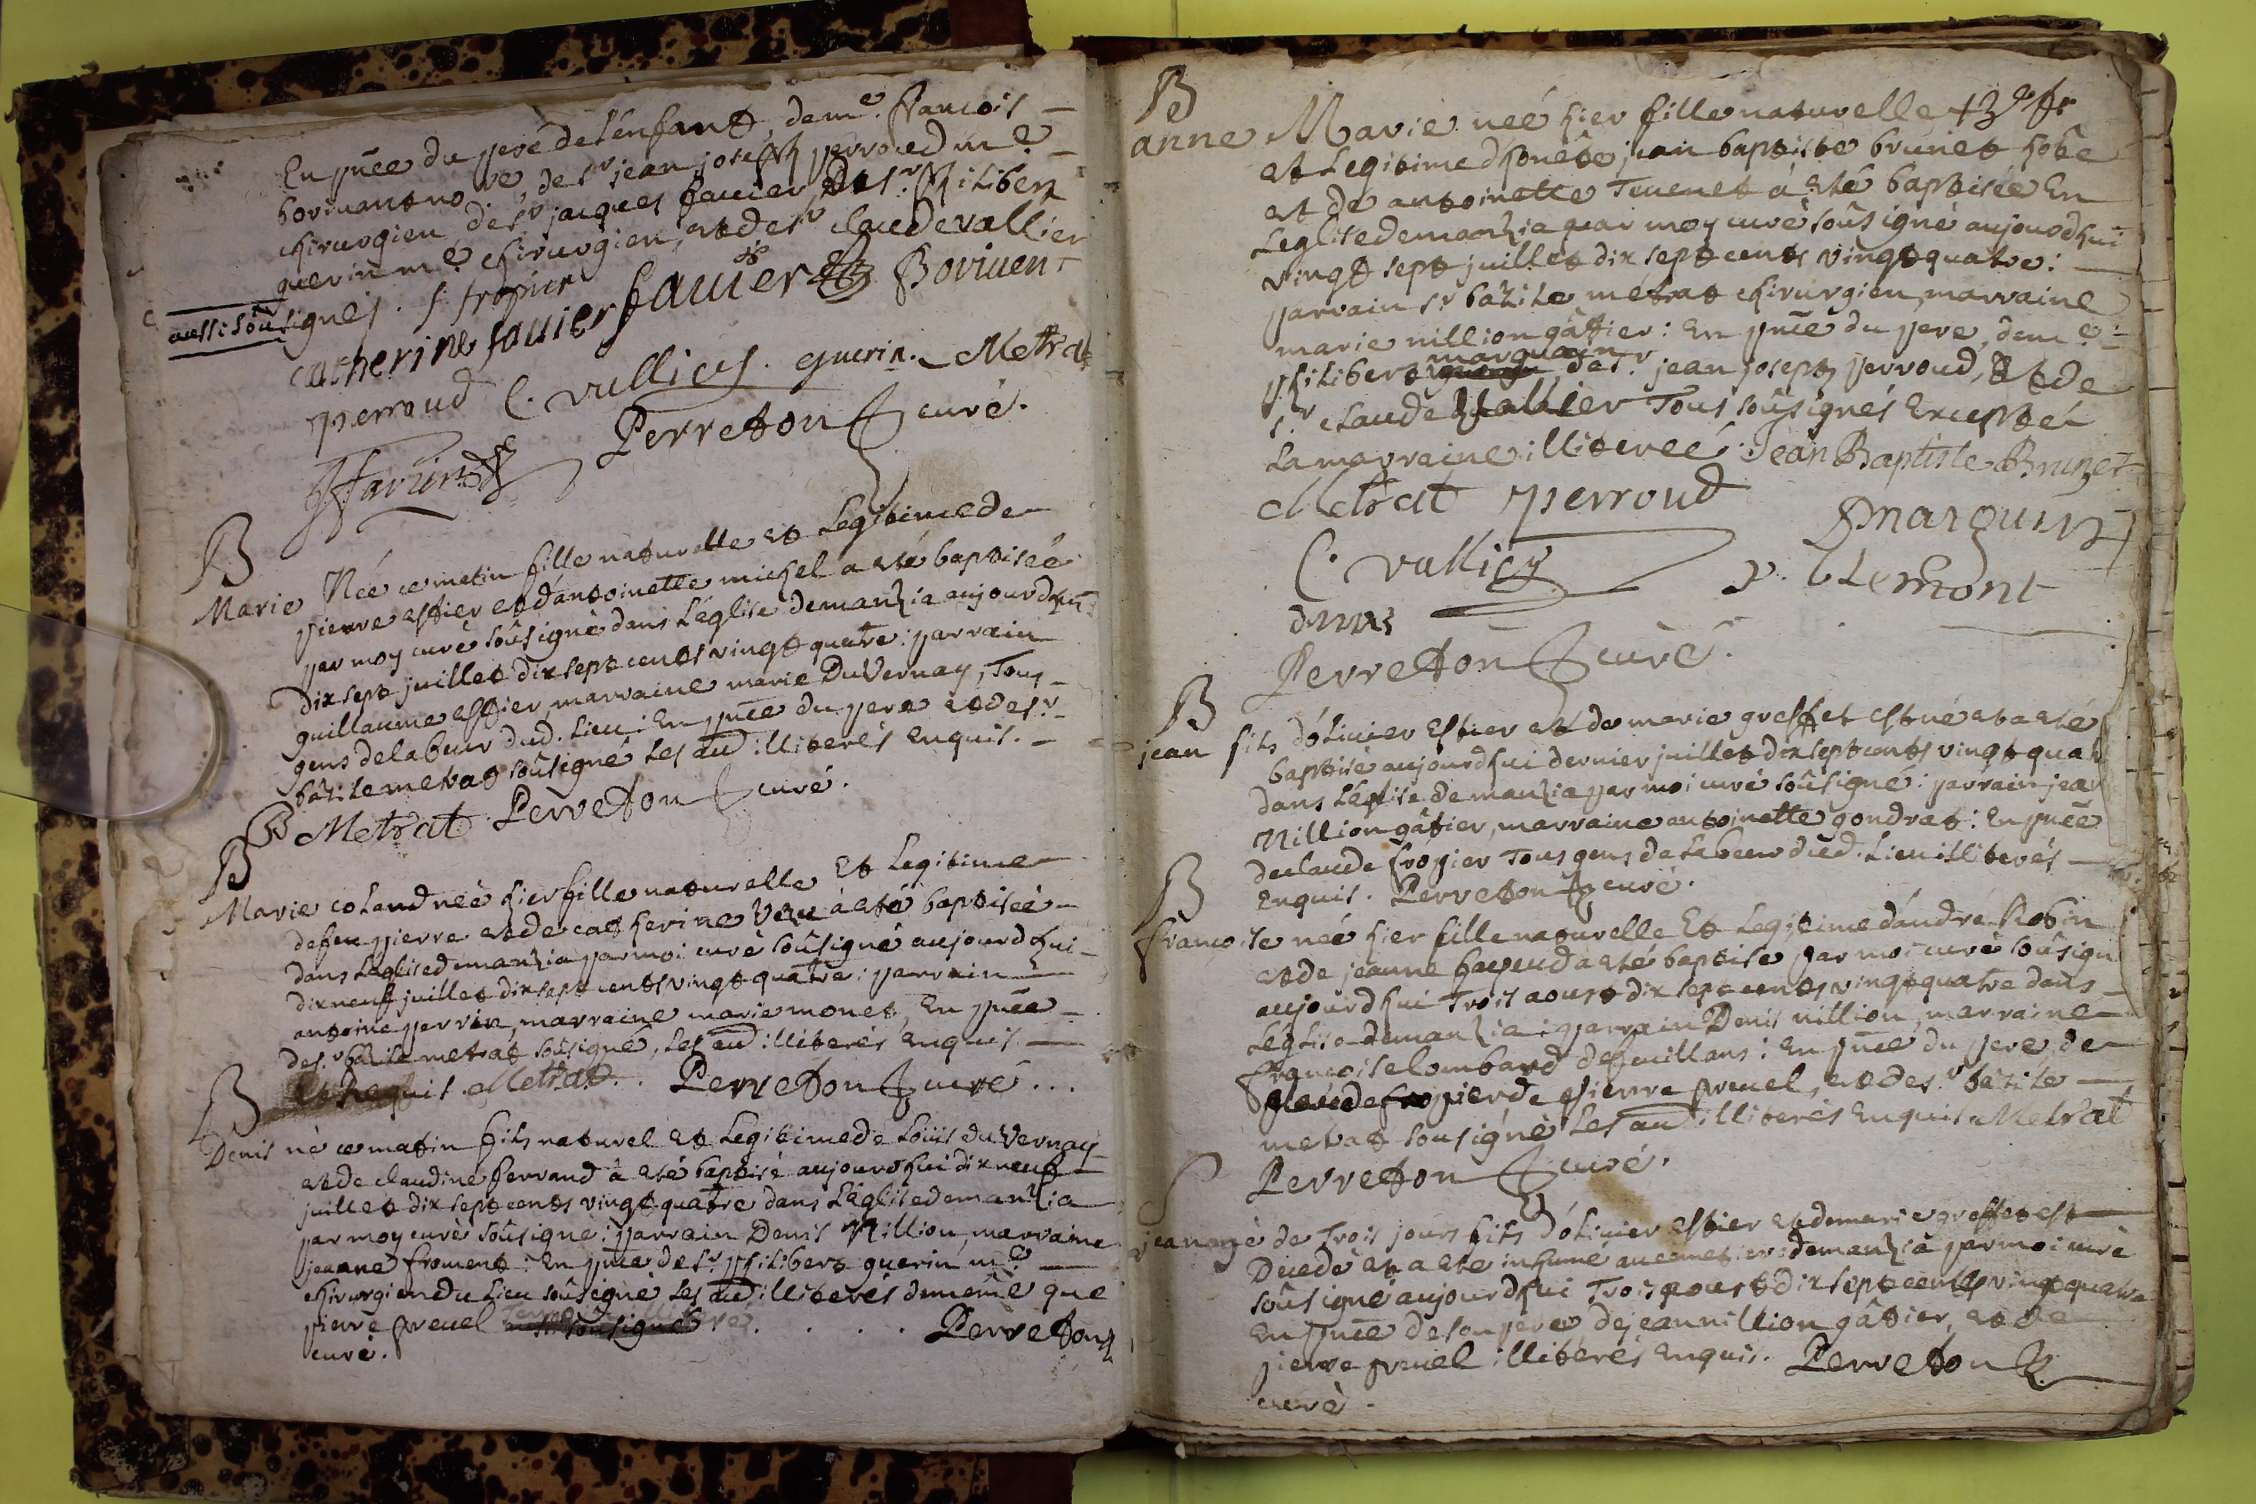 En pñce du pere de l'enfant, de me. francois
borivant no.re, de sr jean joseph perroud me
chirurgien de sr jacques favier, de sr. philibert
guerin me. chirurgien, et de sr claude vallier
aussi soûsignés. f. fropier
catherine favier favier Borivent
perroud C. valliey. guerin. Metrat
Perreton curé.
B
Marie Née ce matin fille naturelle et Legitime de
pierre effier et d'antoinette michel a eté baptisée
par moy curé soûsigné dans L'église de manzia aujourdhuy
dix sept juillet dix sept cents vingt quatre: parrain
guillaume effier, marraine marie DuVernay, Tous
gens de labeur dud. Lieu: En pñce du pere et de sr.
bâzile metrat soûsigné Les au illiterés enquis.
Metrat Perreton curé.
B
Marie coland née hier fille naturelle Et Legitime
de feu pierre et de catherine a eté baptisée
dans L'église de manzia par moi curé soûsigné aujourd'hui
dix neuf juillet dix sept cents vingt quatre: parrain
antoine perrin, marraine marie monet, En pñce
de sr. bâzile metrat soûsigné, Les au illiterés enquis
Metrat. Perreton curé...
B
Denis né ce matin fils naturel et Legitime de Loüis du Vernay
et de claudine ferrand à eté baptisé aujourdhui dix neuf
juillet dix sept cents vingt quatre dans L'église de manzia
par moy curé soûsigné: parrain Denis Million, marraine
jeanne froment: En pñce de sr. philibert guerin me.
chirurgien du Lieu soûsigné Les au illiterés de même que
pierre preuel . . . . Perreton
curé.
B
anne Marie neé hier fille naturelle
et Legitime d'honête jean baptiste brunet hôte
et de antoinette Tevenet à eté baptisée En
L'eglise de manzia par moy curé soûsigné aujourdhui
vingt sept juillet dix sept cents vingt quatre:
parrain sr bâzile métrat chirurgien, marraine
marie million gâtier: En pñce du pere, de me.
philibert marguin, de sr. jean joseph perroud, Et de
sr. claude vallier Tous soûsignés Exceptée
La marraine illiterée: Jean Baptiste Brunet
Metrat perroud
Pmarguin
C. valliey P. Clermont
Perreton curé.
B
jean fils d'olivier Effier et de marie greffet est né et a eté
baptisé aujourdhui dernier juillet dix sept cents vingt quat
dans L'église de manzia par moi curé soûsigné: parrain jean
Million gâtier, marraine antoinette gondrat: En pñce
de claude fropier Tous gens de Labeur dud. Lieu illiterés
Enquis. Perreton curé.
B
francoise neé hier fille naturelle Et Legitime d'andré Robin
et de jeanne a eté baptisé par moi curé soûsign
aujourdhui Trois aoust dix sept cents vingt quatre dans
L'église de manzia: parrain Denis million, marraine
francoise lombard de feuillans: En pñce du pere, de
claude fropier de pierre preuel, et de sr. bâzile
metrat soûsigné Les au illiterés Enquis Metrat
Perreton curé.
jean agé de Trois jours fils d'olivier effier et de marie greffet est
Decedé et a eté inhumé au cimetiere de manzia par moi curé
soûsigné aujourdhui Trois aoust dix sept cents vingt quatre
En pñce de son pere de jean million gâtier, et de
pierre preuel illiterés enquis. Perreton
curé.